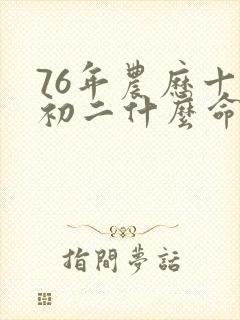 76年農歷十
初二什麼命
指間夢話